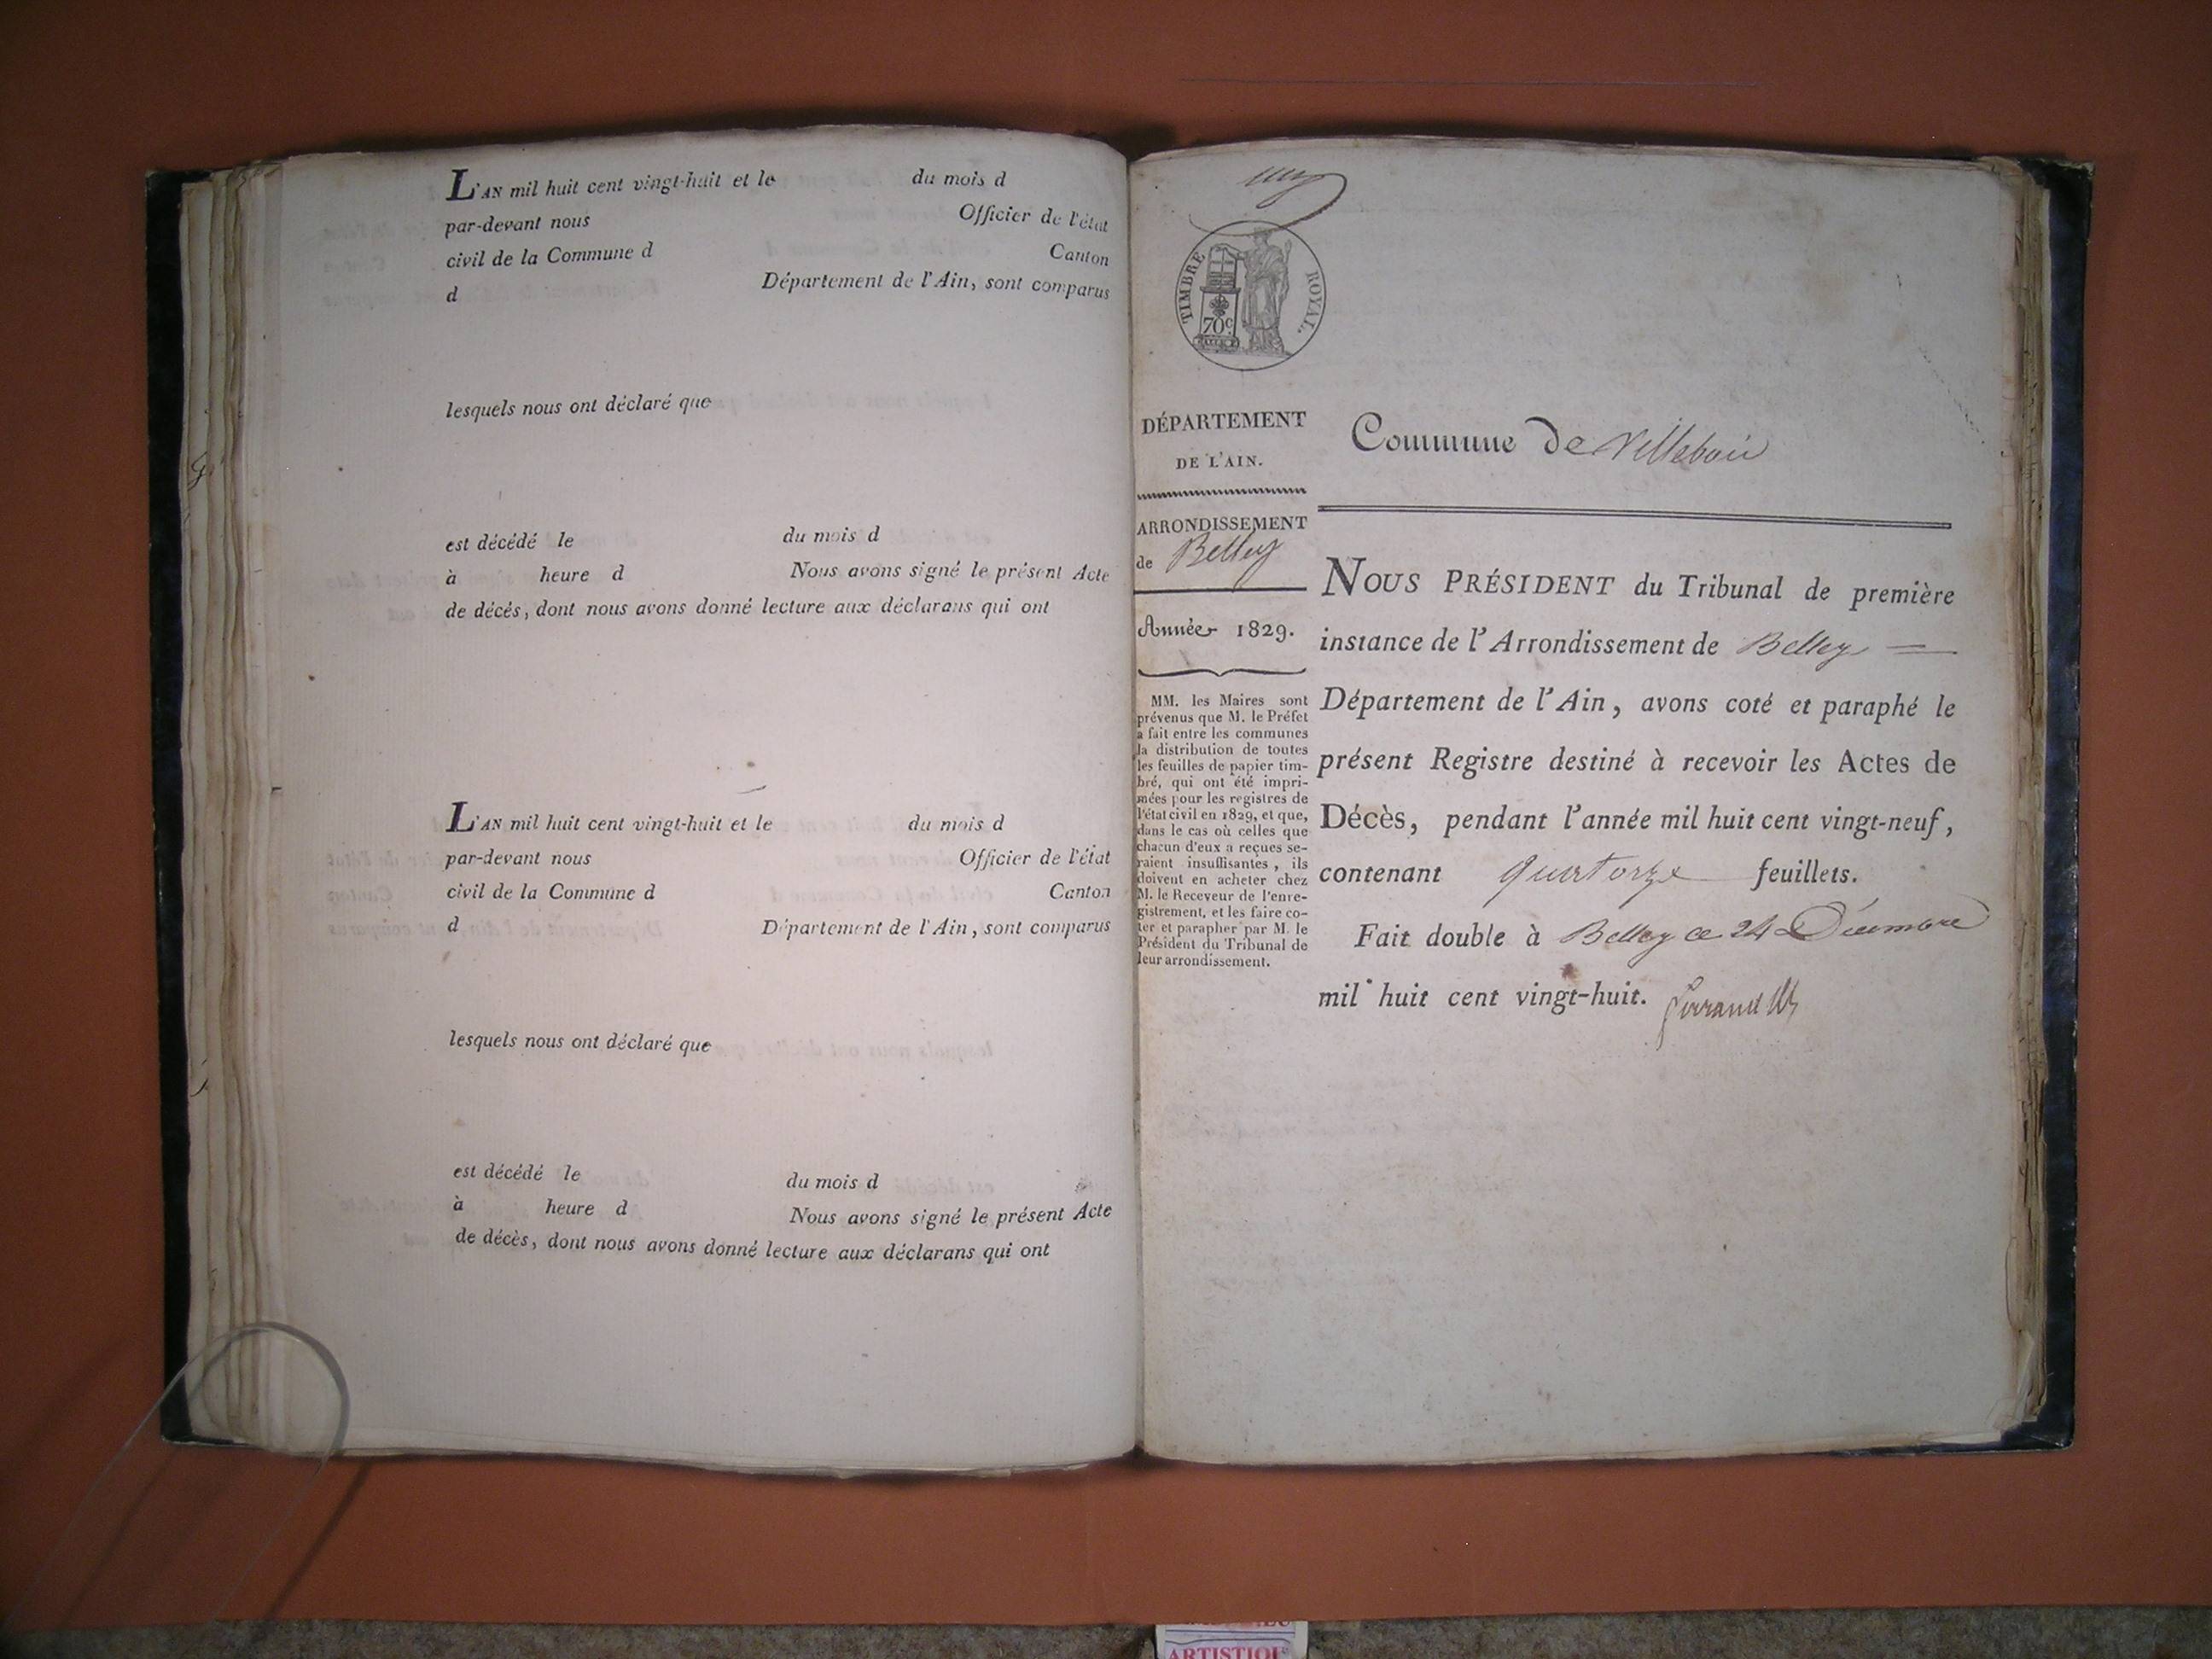 L'AN mil huit cent vingt-huit et le du mois d
par-devant nous Officier de l'état
civil de la Commune d Canton
d Département de l'Ain, sont comparus
lesquels nous ont déclaré que
est décédé le du mois d
à heure d Nous avons signé le présent Acte
de décés, dont nous avons donné lecture aux déclarans qui ont
L'AN mil huit cent vingt-huit et le du mois d
par-devant nous Officier de l'état
civil de la Commune d Canton
d Département de l'Ain, sont comparus
lesquels nous ont déclaré que
est décédé le du mois d
à heure d Nous avons signé le présent Acte
de décès, dont nous avons donné lecture aux déclarans qui ont
TIMBRE ROYAL.
70c.
DÉPARTEMENT
DE L'AIN.
ARRONDISSEMENT
de Belley
Année 1829.
MM. les Maires sont
prévenus que M. le Préfet
a fait entre les communes
la distribution de toutes
les feuilles de papier tim-
bré, qui ont été impri-
mées pour les registres de
l'état civil en 1829, et que,
dans le cas où celles que
chacun d'eux a reçues se-
raient insuffisantes, ils
doivent en acheter chez
M. le Receveur de l'enre-
gistrement, et les faire co-
ter et parapher par M. le
Président du Tribunal de
leur arrondissement.
Commune de Villebois
NOUS PRÉSIDENT du Tribunal de première
instance de l'Arrondissement de Belley
Département de l'Ain, avons coté et paraphé le
présent Registre destiné à recevoir les Actes de
Décès, pendant l'année mil huit cent vingt-neuf,
contenant quatorze feuillets.
Fait double à Belley ce 24 Décembre
mil huit cent vingt-huit.